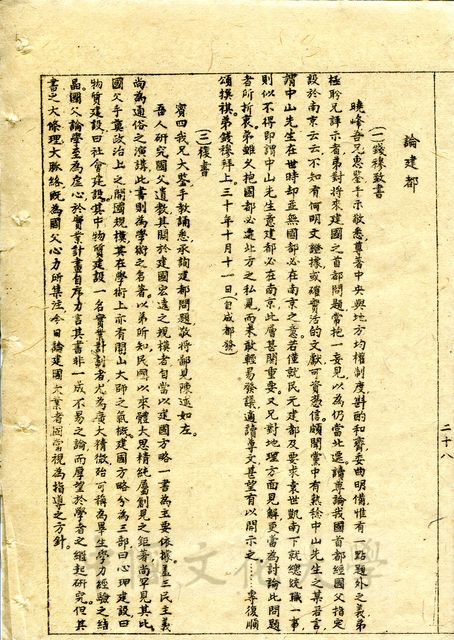 論建都
二十八
(一)錢穆致書
曉峰吾兄惠鑒手示敬悉尊著中央與地方均權制度斟酌和齊委曲明備惟有一點題外之義弟
極盼兄詳示者弟對將來建國之首都問題當抱一妄見以為仍當北遷讀尊論我國首都經國父指定
設於南京云云不知有何明文證據或確實活的文獻可資憑信頗聞黨中有熟稔中山先生之某君言
謂中山先生在世時却並無國都必在南京之意若僅就民元建都及要求袁世凱南下就總統職一事
則似不得即謂中山先生意建都必在南京此層甚關重要又兄對地理方面見解更當為討論此問題
者所折衷弟雖久抱國都必遷北方之私見而未敢輕易發議適讀尊文甚望有以開示之……專復順
頌撰祺弟錢穆拜上三十年十月十一日(自成都發)
(二)復書
賓四我兄大鑒手教誦悉承詢建都問題敬將鄙見陳述如左
吾人研究國父遺教其關於建國宏遠之規模者自當以建國方略一書為主要依據蓋三民主義
尚為通俗之演講此書則為學術之名著以弟所知民國以來體大思精純屬創見之鉅著尚罕見其比
國父手奠政治上之開國規模其在學術上亦有開山大師之氣概建國方略分為三部曰心理建設曰
物質建設曰社會建設其中物質建設一名實業計劃者尤為廣大精微殆可稱為畢生學力經驗之結
晶國父論學至為虛心於實業計畫自序力言其書非一成不易之論而屬望於學者之繼起研究但其
書之大條理大脈絡既為國父心力所集注今日論建國大業者固當視為指導之方針